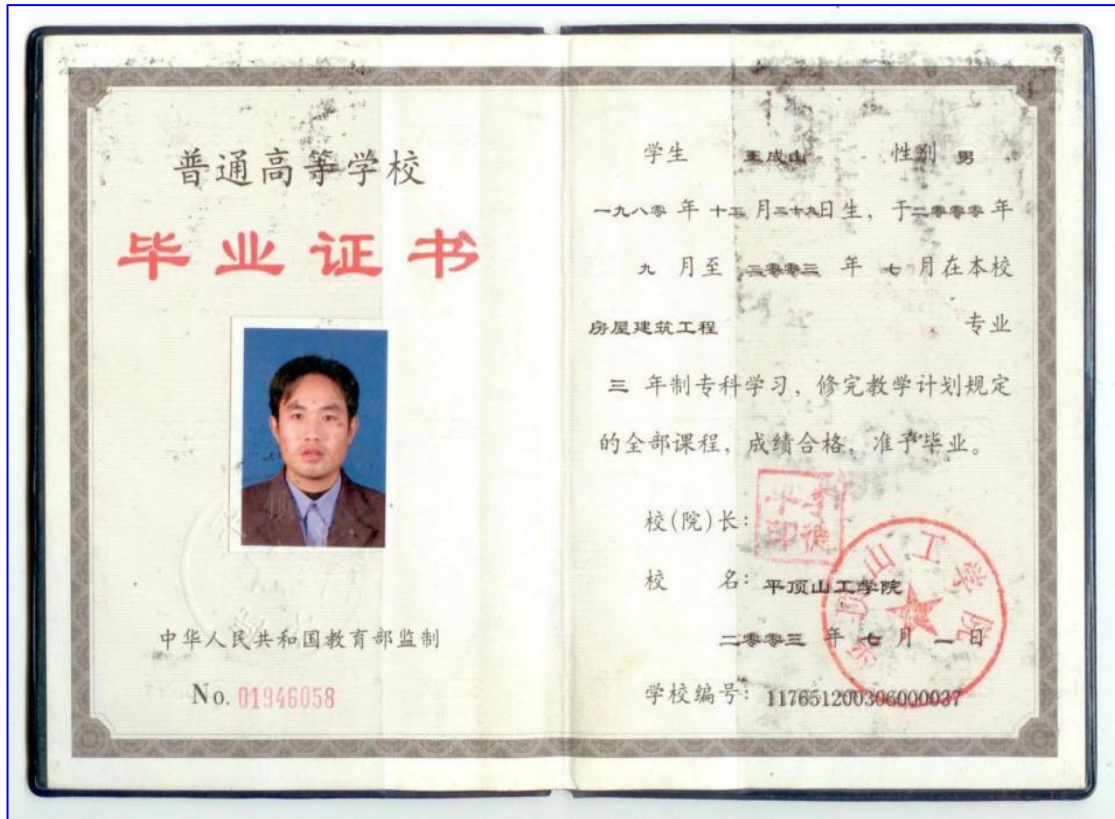 普通高等学校
毕业证书
中华人民共和国教育部监制
No. 01946058
学生 王成山 性别 男
一九八零 年 十二 月二十九日生，于二零零零 年
九 月至 二零零三 年 七 月在本校
房屋建筑工程 专业
三 年制专科学习，修完教学计划规定
的全部课程，成绩合格，准予毕业。
校(院)长：
校 名：平顶山工学院
平顶山工学院
二零零三 年 七 月 一 日
学校编号：117651200306000037